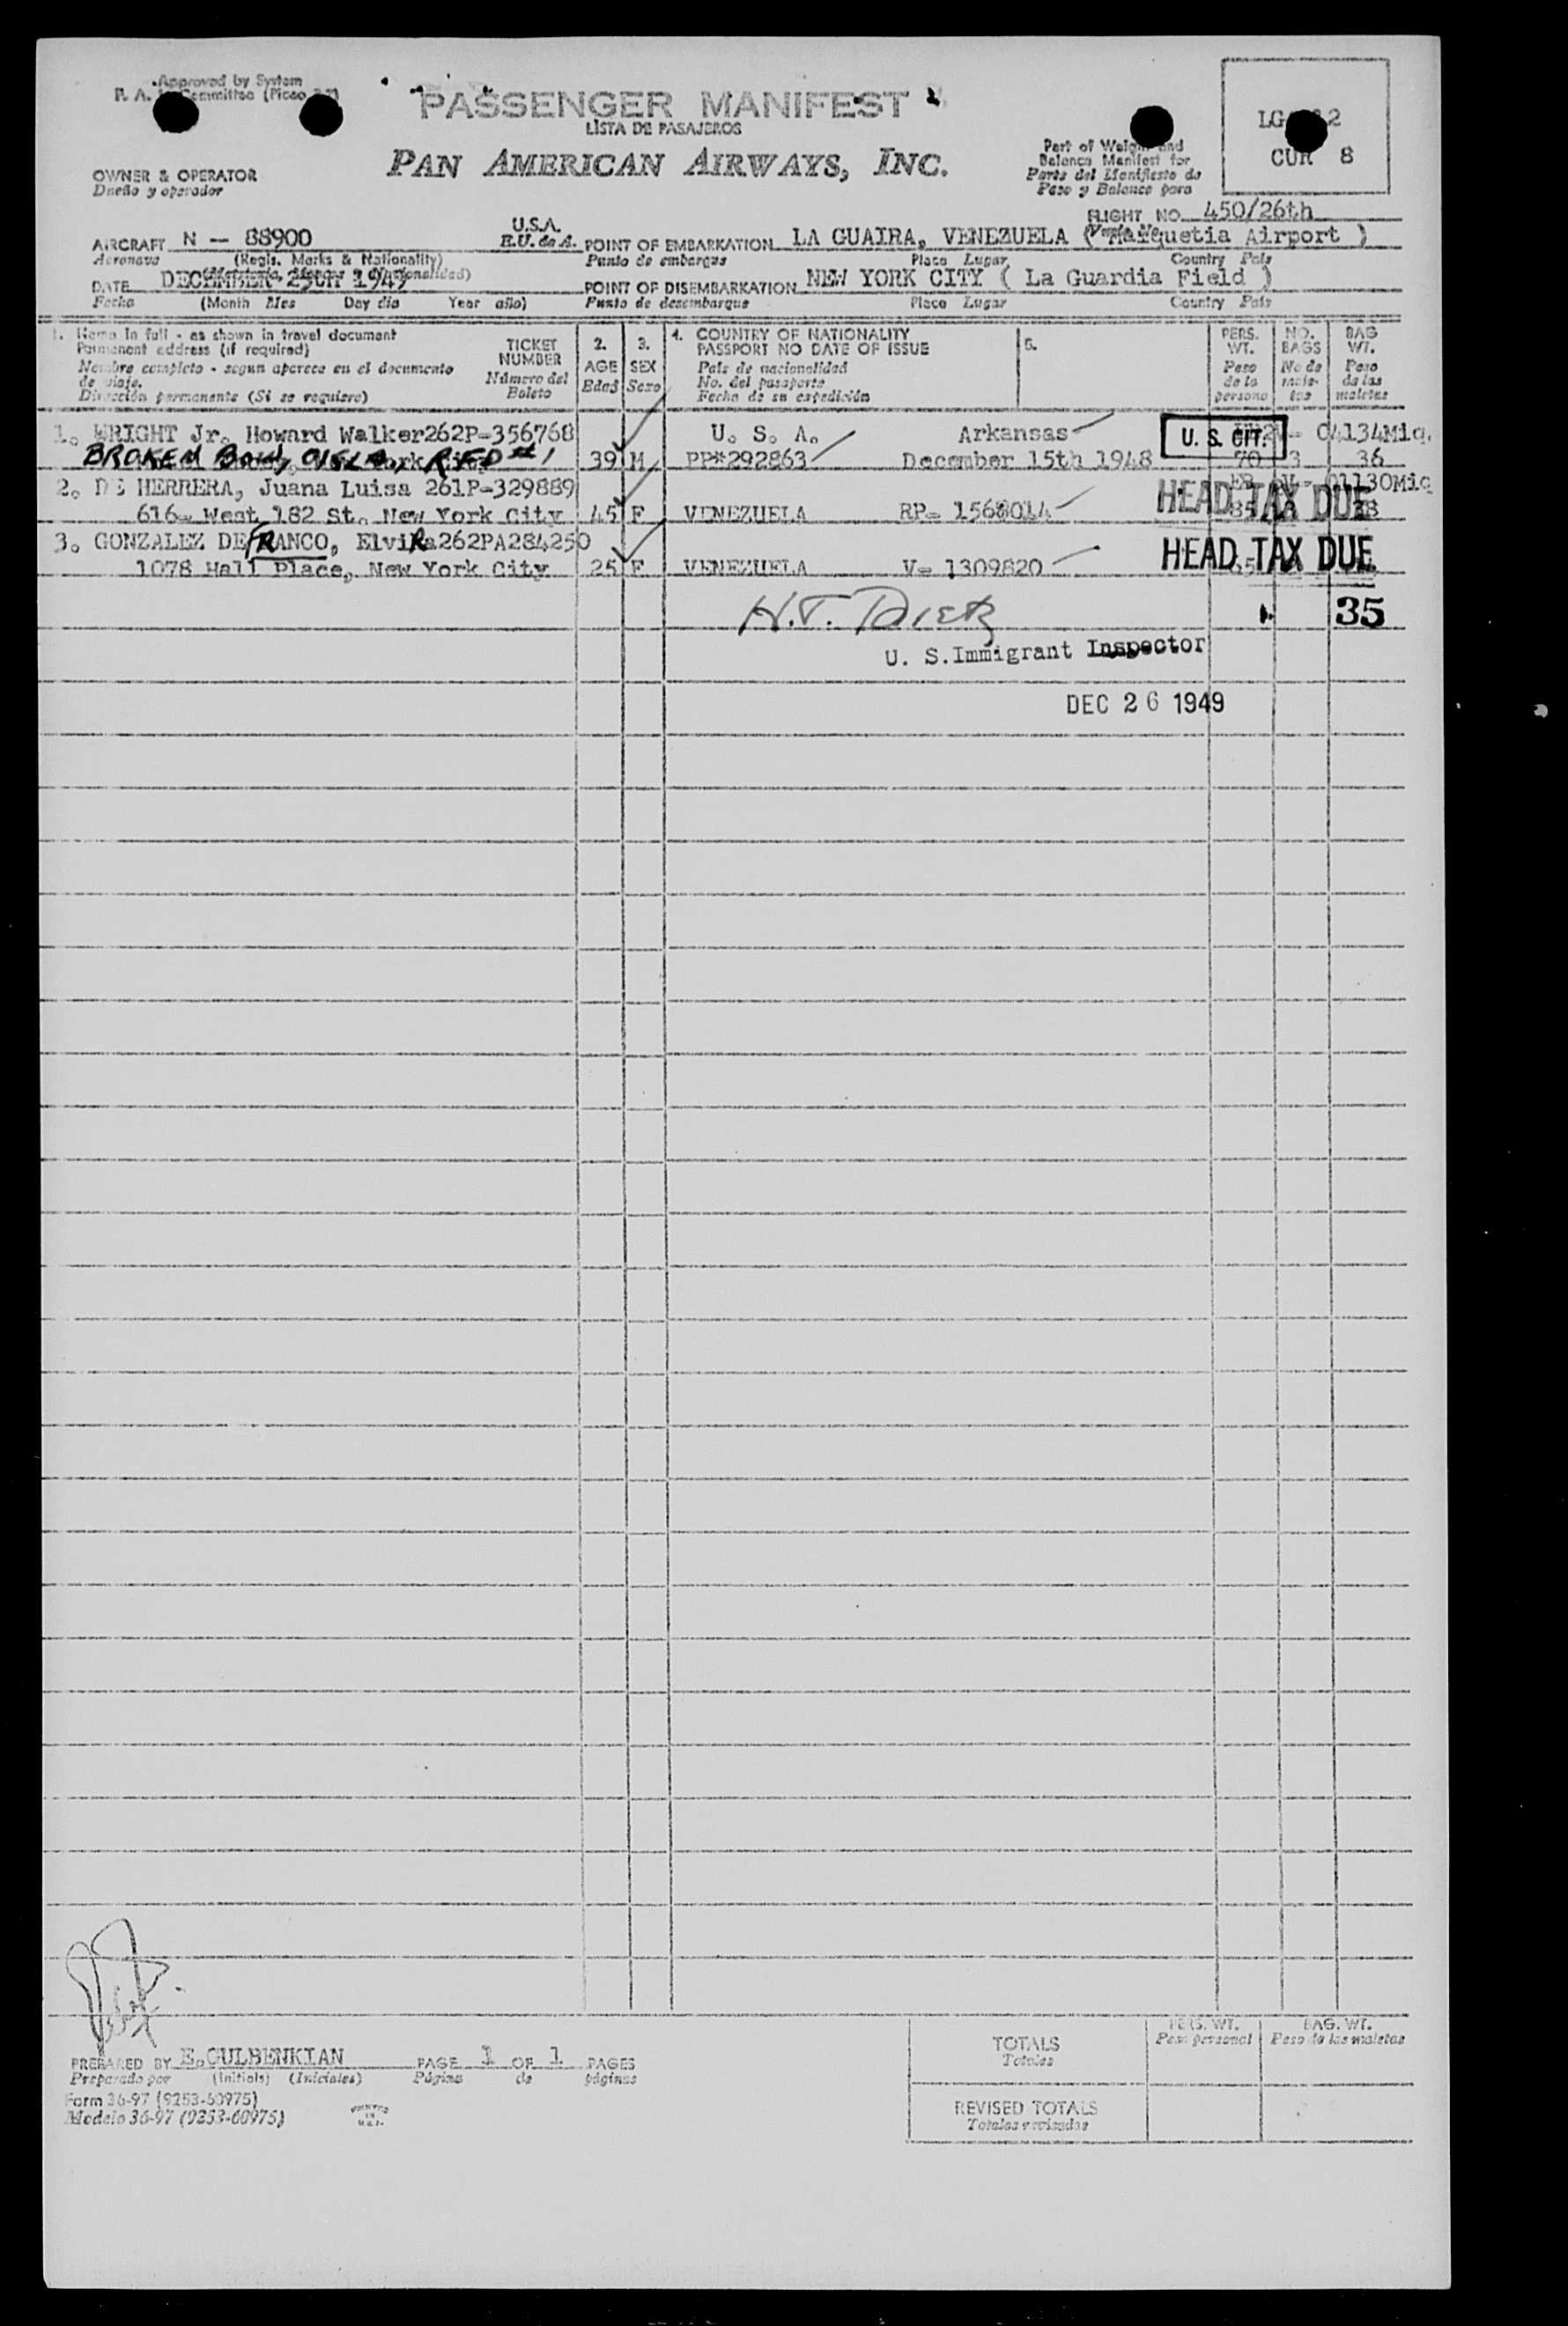 Approved by System
PASSENGER MANIFEST
LISTA DE PASAJEROS
PAN AMERICAN AIRWAYS, INC.
OWNER & OPERATOR
Dueño y operador
Part of Weight and
Balance Manifest for
Parte del Manifiesto de
Peso y Balance para
CUR 8
FLIGHT NO. 450/26th
AIRCRAFT N — 88900 U.S.A.
Aeronave (Regis. Marks & Nationality) E.U. de A.
POINT OF EMBARKATION LA GUAIRA, VENEZUELA ( Maiquetia Airport )
Punto de embarque Place Lugar Country País
DATE DECEMBER 25th 1949
Fecha (Month Mes Day día Year año)
POINT OF DISEMBARKATION NEW YORK CITY ( La Guardia Field )
Punto de desembarque Place Lugar Country País
1. Name in full - as shown in travel document
Permanent address (if required)
Nombre completo - segun aparece en el documento
de viaje.
Dirección permanente (Si se requiere)
TICKET
NUMBER
Número del
Boleto
2.
AGE
Edad
3.
SEX
Sexo
4. COUNTRY OF NATIONALITY
PASSPORT NO DATE OF ISSUE
País de nacionalidad
No. del pasaporte
Fecha de su expedición
5.
PERS.
WT.
Peso
de la
persona
NO.
BAGS
No de
male-
tas
BAG
WT.
Peso
de las
maletas
1. WRIGHT Jr. Howard Walker262P-356768 U. S. A. Arkansas U. S. CIT. 04134Miq.
BROKEN BOW, OKLA, RFD #1 39 M PP*292863 December 15th 1948 70 3 36
2. DE HERRERA, Juana Luisa 261P-329889 01130Miq
616- West 182 St. New York City 45 F VENEZUELA RP- 1568014 HEAD TAX DUE
3. GONZALEZ DE FRANCO, ElviRa262PA284250
1078 Hall Place, New York City 25 F VENEZUELA V- 1309820 HEAD TAX DUE
H.T. Dietz 35
U. S. Immigrant Inspector
DEC 26 1949
PREPARED BY E.GULBENKIAN PAGE 1 OF 1 PAGES
Preparado por (Initials) (Iniciales) Página de páginas
Form 36-97 (9253-60975)
Modelo 36-97 (9253-60975)
PRINTED
IN
U.S.A.
TOTALS
Totales
PERS. WT.
Peso personal
BAG. WT.
Peso de las maletas
REVISED TOTALS
Totales revisados